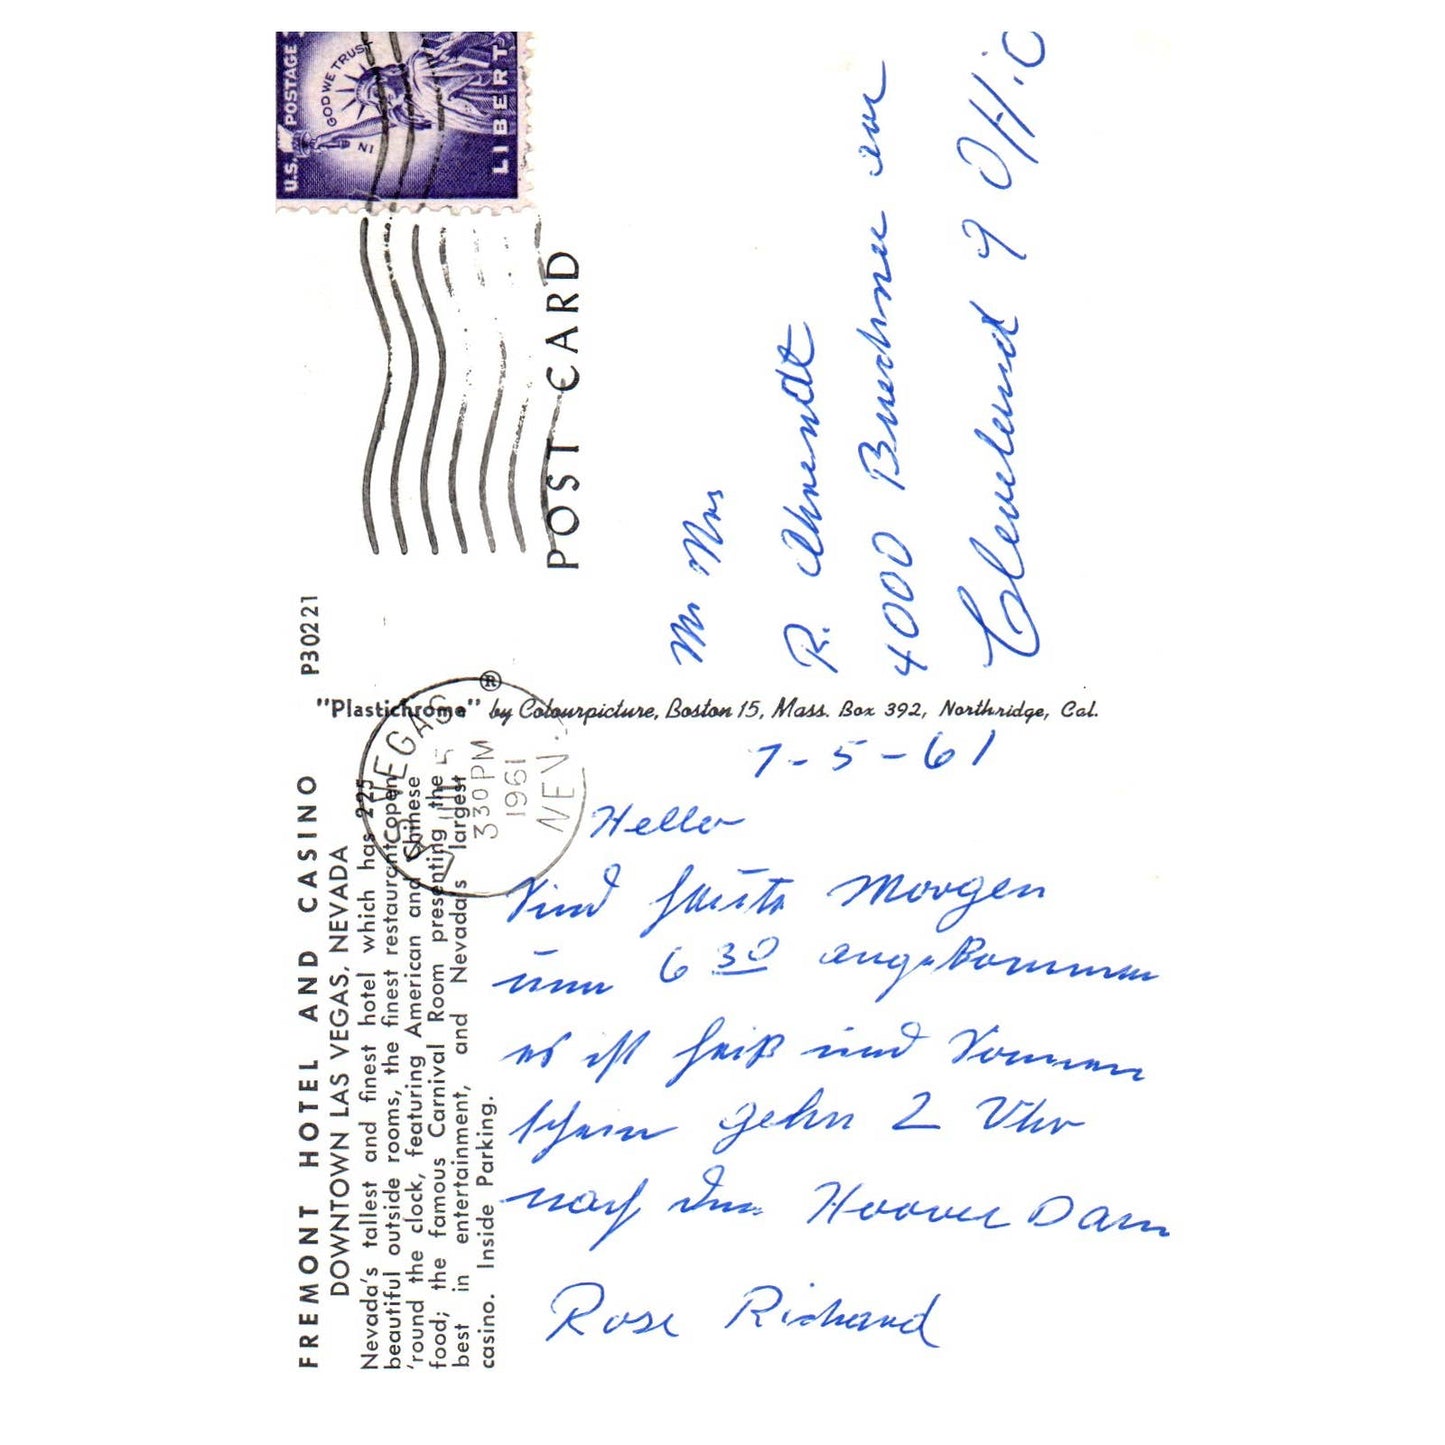 FREMONT HOTEL AND CASINO
DOWNTOWN LAS VEGAS, NEVADA
Nevada's tallest and finest hotel which has 225
beautiful outside rooms, the finest restaurant open
'round the clock, featuring American and Chinese
food; the famous Carnival Room presenting the
best in entertainment, and Nevada's largest
casino. Inside Parking.
P30221
"Plastichrome" ® by Colourpicture, Boston 15, Mass. Box 392, Northridge, Cal.
VEGAS
5
330PM
1961
NEV.
POST CARD
U.S. POSTAGE
IN GOD WE TRUST
LIBERT
7-5-61
Hello
Sind heute Morgen
um 6 30 angekommen
es ist heiß und Sonnen
schein gehn 2 Uhr
nach dem Hoover Dam
Rose Richard
Mr Mrs
R. Ahrendt
4000 Buechner ave
Cleveland 9 OHiO